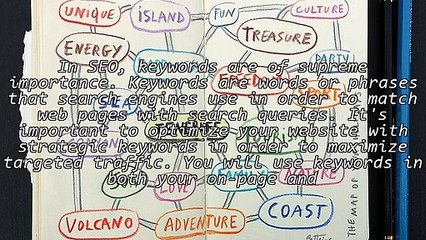 UNIQUE
ISLAND
FUN
CULTURE
TREASURE
ENERGY
PARTY
In SEO, keywords are of supreme
importance. Keywords are words or phrases
that search engines use in order to match
web pages with search queries. It's
important to optimize your website with
strategic keywords in order to maximize
targeted traffic. You will use keywords in
both your on-page and
NATURE
LOVE
VOLCANO
ADVENTURE
COAST
THE MAP OF